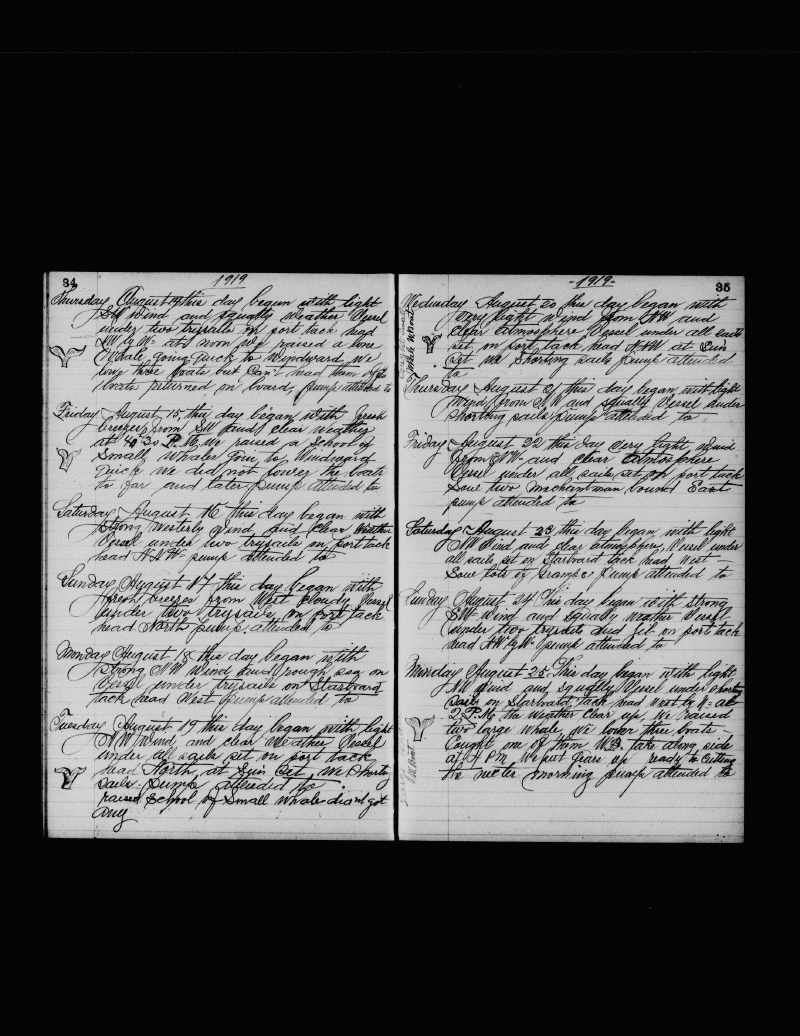 34
1919
Thursday August 14 this day began with light
SW Wind and squally Weather Vessel
under two trysails on port tack head
at noon we raised a lone
Whale going quick to Windward We
long three boats but can't head them off
boats returned on board, pump attended to
Friday August 15, this day began with fresh
breezes from SW and clear weather
at 4-30 P.M. we raised a School of
Small Whales Goin to Windward
Quick We did not lower the boats
to far and later pump attended to
Saturday August 16 this day began with
strong Westerly Wind and Clear Weather
Vessel under two trysails on port tack
head NNW pump attended to
Sunday August 17 this day began with
fresh breezes from West Cloudy Vessel
under two trysails on port tack
head North pump attended to
Monday August 18 this day began with
strong NW Wind and rough sea on
Vessel under trysails on Starboard
tack head West pump attended to
Tuesday August 19 this day began with light
NW Wind and clear Weather Vessel
under all sails set on port tack
head North at Sun Set We Shorty
sails pump attended to
raised School of Small Whale didnt got
any
35
-1919-
Wednesday August 20 this day began with
very light Wind from NW and
clear Atmosphere Vessel under all sails
set on port tack head NNW at Sun
set we Shorting sails pump attended
to
Thursday August 21 this day began with light
Wind from NW and squally Vessel under
shorting sails pump attended to
Friday August 22 this day very light Wind
from and clear Atmosphere
Vessel under all sails set on port tack
Saw two merchantman bound East
pump attended to
Saturday August 23 this day began with light
NW Wind and clear atmosphere, Vessel under
all sails set on Starboard tack head West
Saw lots of Grampus pump attended to
Sunday August 24 This day began with strong
SW Wind and squally weather Vessel
under two trysails and jib on port tack
head pump attended to
Monday August 25 This day began with light
NW Wind and squally Vessel under shorting
sails on Starboard tack head West by N at
2 P.M. the Weather Clear up We raised
two large whale we lower three boats
Caught one of tham W.B. take along side
at P.M. We put Gears up ready to Cutting
the nexter morning pump attended to
Whale W Boat
W Boat